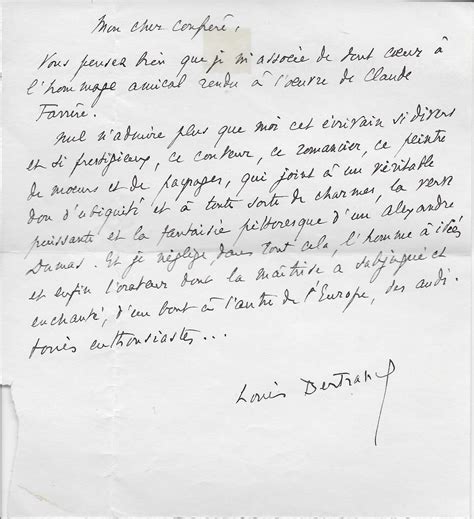 Mon cher confrère,
Vous pensez bien que je m'associe de tout cœur à
l'hommage amical rendu à l'œuvre de Claude
Farrère.
Nul n'admire plus que moi cet écrivain si divers
et si prestigieux, ce conteur, ce romancier, ce peintre
de mœurs et de paysages, qui joint à un véritable
don d'ubiquité et à toute sorte de charmes, la verve
puissante et la fantaisie pittoresque d'un Alexandre
Dumas. Et je néglige, dans tout cela, l'homme à idées
et enfin l'orateur dont la maîtrise a subjugué et
enchanté, d'un bout à l'autre de l'Europe, des audi-
toires enthousiastes...
Louis Bertrand